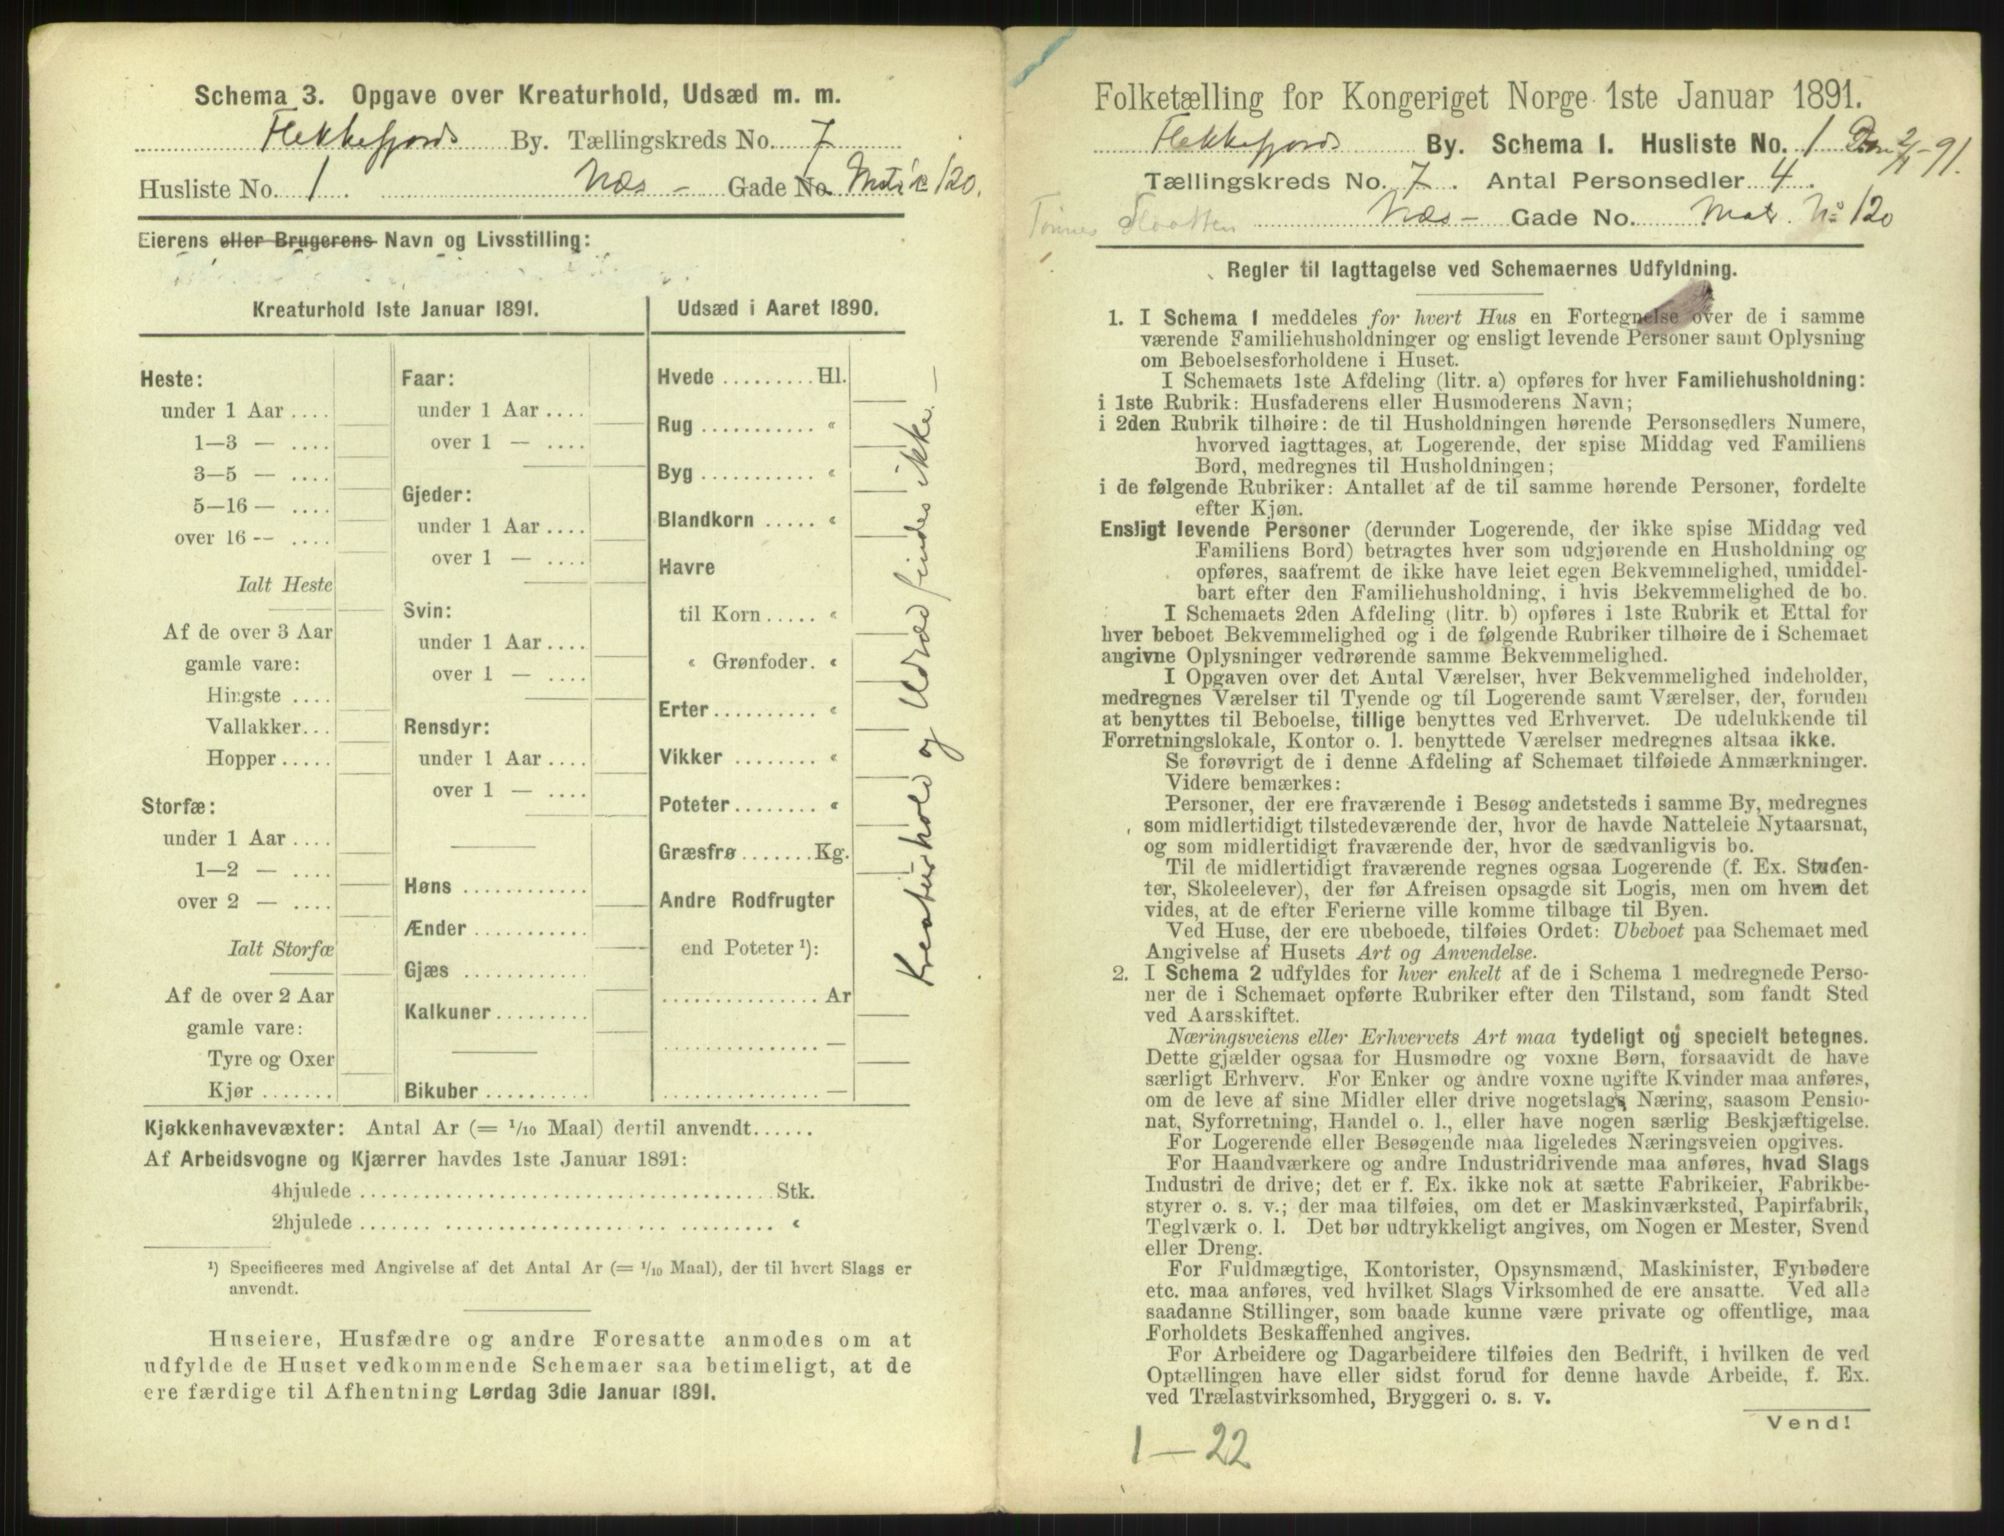 Schema 3. Opgave over Kreaturhold, Udsæd m. m.
Flekkefjords By. Tællingskreds No. 7
Husliste No. 1 Næs – Gade No. Matr № 120.
Eierens eller Brugerens Navn og Livsstilling:
Kreaturhold 1ste Januar 1891.
Heste:
under 1 Aar ....
1—3 — ....
3—5 — ....
5—16 — ....
over 16 -- ....
Ialt Heste
Af de over 3 Aar
gamle vare:
Hingste ....
Vallakker...
Hopper .....
Storfæ:
under 1 Aar ....
1—2 — ....
over 2 — ....
Ialt Storfæ
Af de over 2 Aar
gamle vare:
Tyre og Oxer
Kjør .......
Faar:
under 1 Aar ....
over 1 — ....
Gjeder:
under 1 Aar ....
over 1 — ....
Svin:
under 1 Aar ....
over 1 — ....
Rensdyr:
under 1 Aar ....
over 1 — ....
Høns ...........
Ænder ..........
Gjæs ...........
Kalkuner.........
Bikuber .........
Udsæd i Aaret 1890.
Hvede .........Hl.
Rug .......... «
Byg .......... «
Blandkorn ..... «
Havre
til Korn ..... «
« Grønfoder. «
Erter.......... «
Vikker ........ «
Poteter ........ «
Græsfrø .......Kg.
Andre Rodfrugter
end Poteter ¹):
............... Ar
............... —
............... —
Kreaturhold og Udsæd findes ikke. —
Kjøkkenhavevæxter: Antal Ar (= 1/10 Maal) dertil anvendt......
Af Arbeidsvogne og Kjærrer havdes 1ste Januar 1891:
4hjulede ........................................ Stk.
2hjulede ........................................ «
¹) Specificeres med Angivelse af det Antal Ar (= 1/10 Maal), der til hvert Slags er
anvendt.
Huseiere, Husfædre og andre Foresatte anmodes om at
udfylde de Huset vedkommende Schemaer saa betimeligt, at de
ere færdige til Afhentning Lørdag 3die Januar 1891.
Folketælling for Kongeriget Norge 1ste Januar 1891.
Flekkefjords By. Schema I. Husliste No. 1 Den 2/1 – 91.
Tællingskreds No. 7. Antal Personsedler 4.
Tønnes Næs – Gade No. Matr. № 120
Regler til Iagttagelse ved Schemaernes Udfyldning.
1. I Schema 1 meddeles for hvert Hus en Fortegnelse over de i samme
værende Familiehusholdninger og ensligt levende Personer samt Oplysning
om Beboelsesforholdene i Huset.
I Schemaets 1ste Afdeling (litr. a) opføres for hver Familiehusholdning:
i 1ste Rubrik: Husfaderens eller Husmoderens Navn;
i 2den Rubrik tilhøire: de til Husholdningen hørende Personsedlers Numere,
hvorved iagttages, at Logerende, der spise Middag ved Familiens
Bord, medregnes til Husholdningen;
i de følgende Rubriker: Antallet af de til samme hørende Personer, fordelte
efter Kjøn.
Ensligt levende Personer (derunder Logerende, der ikke spise Middag ved
Familiens Bord) betragtes hver som udgjørende en Husholdning og
opføres, saafremt de ikke have leiet egen Bekvemmelighed, umiddel-
bart efter den Familiehusholdning, i hvis Bekvemmelighed de bo.
I Schemaets 2den Afdeling (litr. b) opføres i 1ste Rubrik et Ettal for
hver beboet Bekvemmelighed og i de følgende Rubriker tilhøire de i Schemaet
angivne Oplysninger vedrørende samme Bekvemmelighed.
I Opgaven over det Antal Værelser, hver Bekvemmelighed indeholder,
medregnes Værelser til Tyende og til Logerende samt Værelser, der, foruden
at benyttes til Beboelse, tillige benyttes ved Erhvervet. De udelukkende til
Forretningslokale, Kontor o. l. benyttede Værelser medregnes altsaa ikke.
Se forøvrigt de i denne Afdeling af Schemaet tilføiede Anmærkninger.
Videre bemærkes:
Personer, der ere fraværende i Besøg andetsteds i samme By, medregnes
som midlertidigt tilstedeværende der, hvor de havde Natteleie Nytaarsnat,
og som midlertidigt fraværende der, hvor de sædvanligvis bo.
Til de midlertidigt fraværende regnes ogsaa Logerende (f. Ex. Studen-
ter, Skoleelever), der før Afreisen opsagde sit Logis, men om hvem det
vides, at de efter Ferierne ville komme tilbage til Byen.
Ved Huse, der ere ubeboede, tilføies Ordet: Ubeboet paa Schemaet med
Angivelse af Husets Art og Anvendelse.
2. I Schema 2 udfyldes for hver enkelt af de i Schema 1 medregnede Perso-
ner de i Schemaet opførte Rubriker efter den Tilstand, som fandt Sted
ved Aarsskiftet.
Næringsveiens eller Erhvervets Art maa tydeligt og specielt betegnes.
Dette gjælder ogsaa for Husmødre og voxne Børn, forsaavidt de have
særligt Erhverv. For Enker og andre voxne ugifte Kvinder maa anføres,
om de leve af sine Midler eller drive nogetslags Næring, saasom Pensio-
nat, Syforretning, Handel o. l., eller have nogen særlig Beskjæftigelse.
For Logerende eller Besøgende maa ligeledes Næringsveien opgives.
For Haandværkere og andre Industridrivende maa anføres, hvad Slags
Industri de drive; det er f. Ex. ikke nok at sætte Fabrikeier, Fabrikbe-
styrer o. s. v.; der maa tilføies, om det er Maskinværksted, Papirfabrik,
Teglværk o. l. Det bør udtrykkeligt angives, om Nogen er Mester, Svend
eller Dreng.
For Fuldmægtige, Kontorister, Opsynsmænd, Maskinister, Fyrbødere
etc. maa anføres, ved hvilket Slags Virksomhed de ere ansatte. Ved alle
saadanne Stillinger, som baade kunne være private og offentlige, maa
Forholdets Beskaffenhed angives.
For Arbeidere og Dagarbeidere tilføies den Bedrift, i hvilken de ved
Optællingen have eller sidst forud for denne havde Arbeide, f. Ex.
ved Trælastvirksomhed, Bryggeri o. s. v.
Vend!
1 — 22